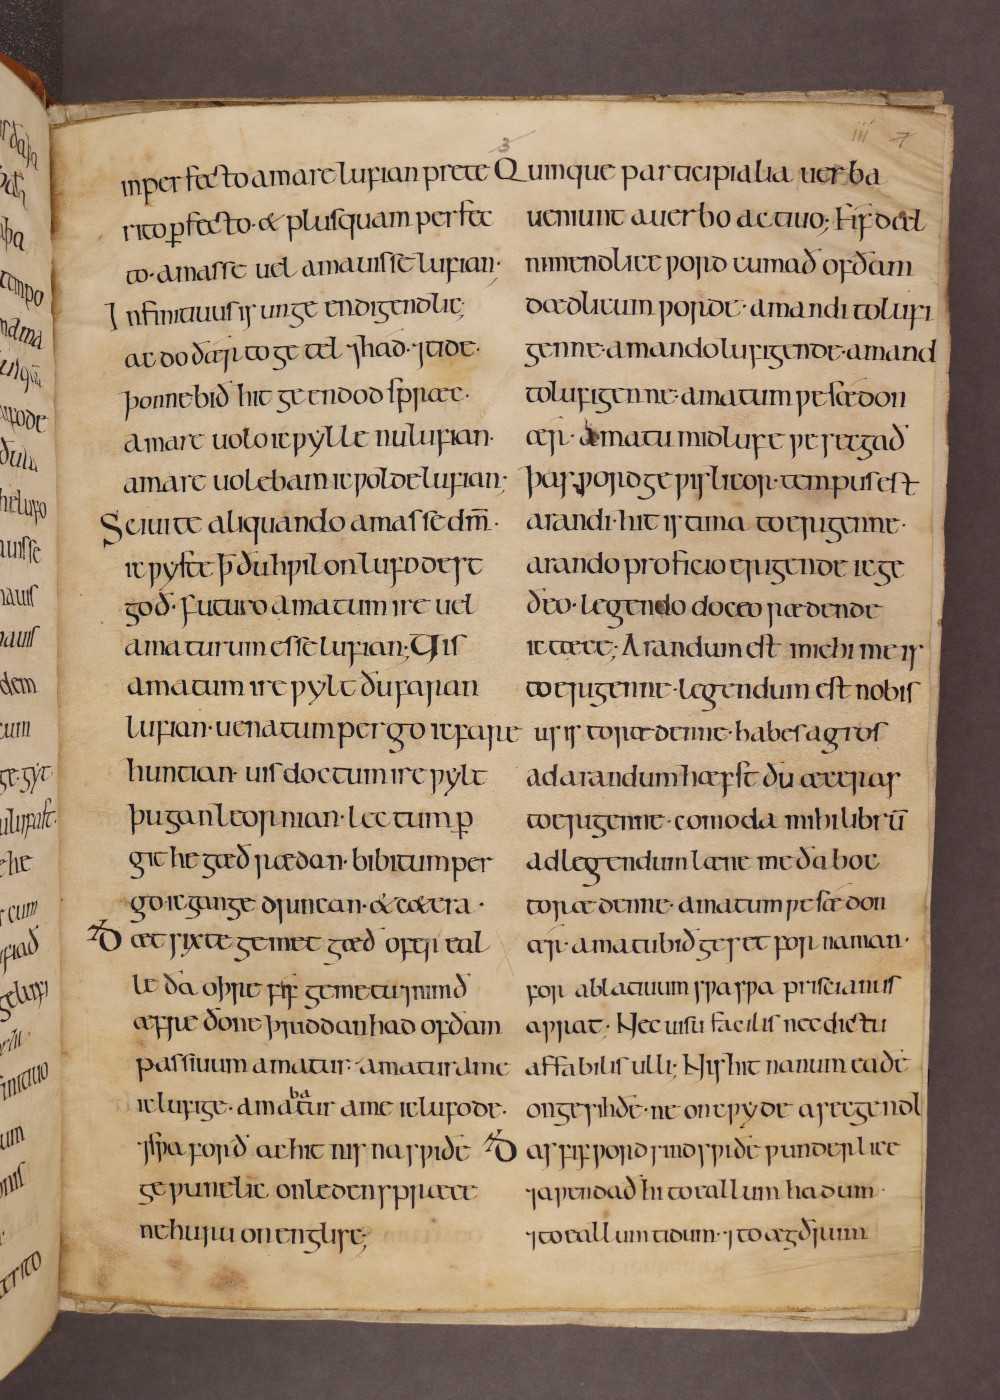 inperfecto amare lufian prete
rito ꝑfecto · & plusquam perfec
to · amasse uel amauisse lufian ·
Infinitiuus is unge endigendlic;
ac do ðær to getel ⁊ had · ⁊ tide ·
þonne bið hit ge endod spræc ·
amare uolo ic ƿylle nu lufian ·
amare uolebam ic ƿolde lufian;
Sciui te aliquando amasse dm̅ ·
ic ƿyste ꝥ ðu hƿilon lufodest
god · futuro amatum ire uel
amaturum esse lufian; Uis
amatum ire ƿylt ðu faran
lufian · uenatum pergo ic fare
huntian · uis doctum ire ƿylt
þu gan leornian · lectum ꝑ
git he gæð rædan · bibitum per
go ic gange drincan · & cætera ·
Ðæt sixte gemet gæð ofer eal
le ða oþre fif gemetu ⁊ nimð
æfre ðone þriddan had of ðam
passiuum amatur · amatur a me
ic lufige · amabatur a me ic lufode ·
⁊ sƿa forð ac hit nis na sƿiðe
ge ƿunelic on leden spræce
ne huru on englisc;
3
iii
7
Quinque participialia uerba
ueniunt a uerbo actiuo; Fif dæl
nimendlice ƿord cumað of ðam
dædlicum ƿorde · amandi to lufi
genne · amando lufigende · amand
to lufigenne · amatum ƿe sædon
ær · amatu mid lufe ƿe secgað
þas ƿord geƿislicor · tempus est
arandi · hit is tima to erigenne ·
arando proficio erigende ic ge
ðeo · legendo doceo rædende
ic tæce; Arandum est michi me is
to erigenne · legendum est nobis
us is to rædenne · habes agros
ad arandum hæfst ðu æceras
to erigenne · comoda mihi libru̅
ad legendum læne me ða boc
to rædenne · amatum ƿe sædon
ær · amatu bið geset for naman ·
for ablatiuum sƿa sƿa priscianus
aƿrat · Nec uisu facilis nec dictu
affabilis ulli; Nis hit nanum eaðe
on gesihðe · ne on cƿyde asecgendl
Ðas fif ƿord sind sƿiðe ƿunderlice
⁊ aƿendað hi to eallum hadum ·
⁊ to eallum tidum · ⁊ to ægðrum